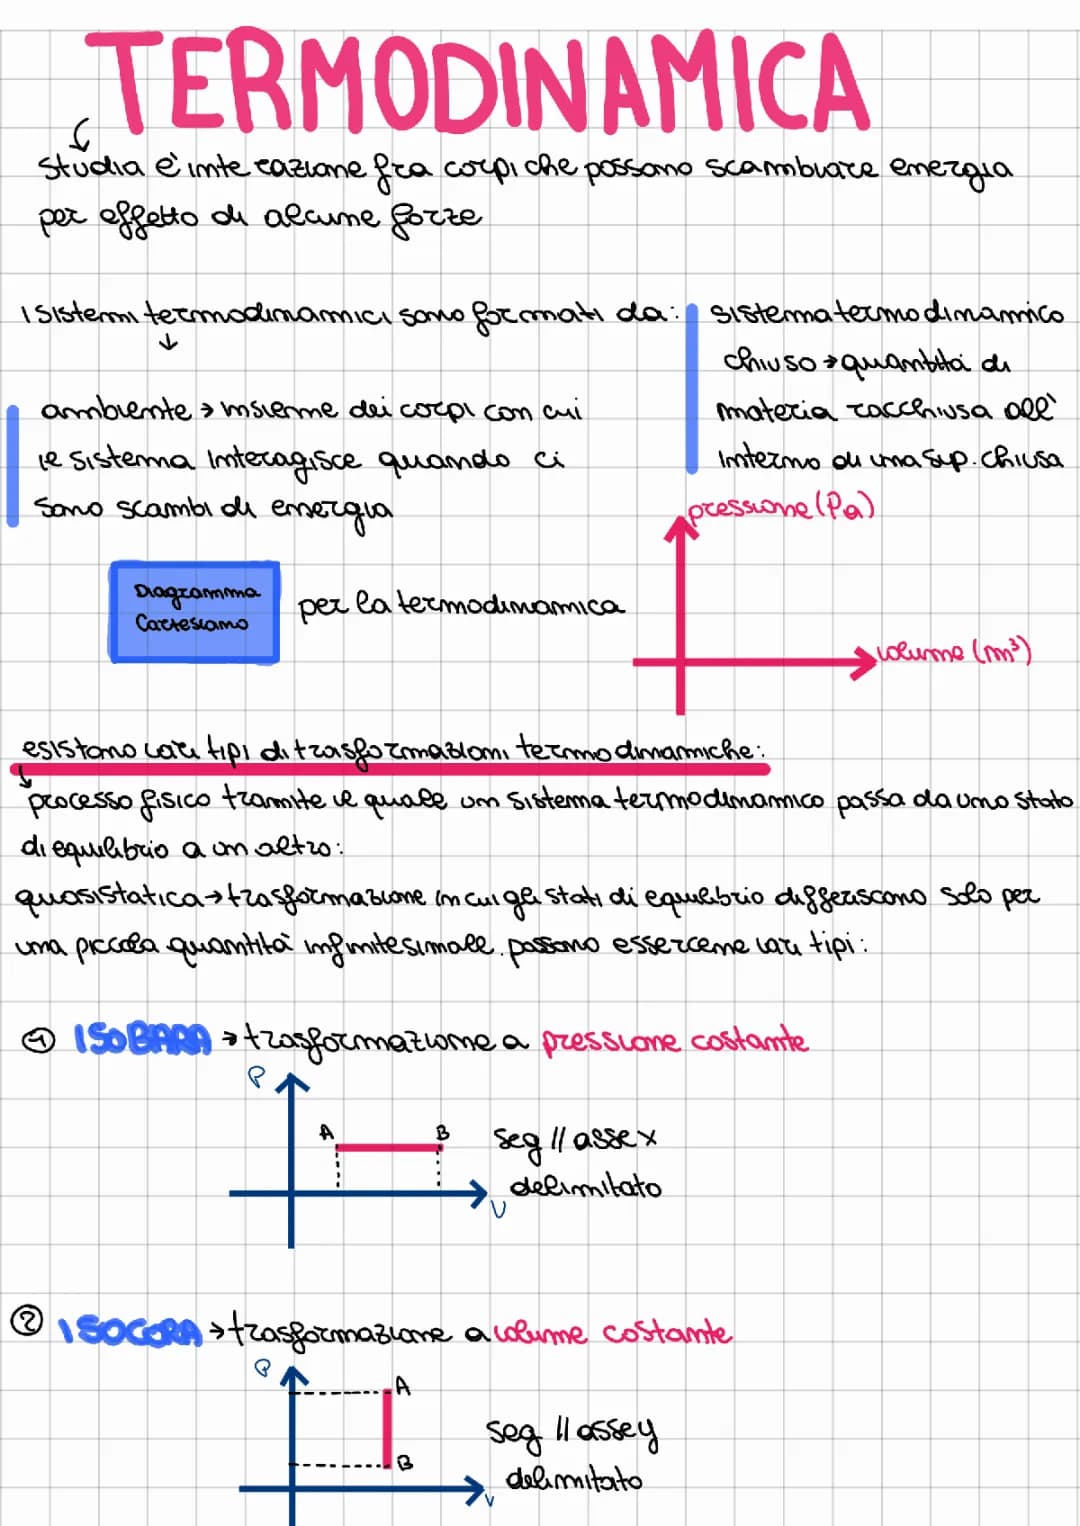 TERMODINAMICA
studia l'interazione fra corpi che possono scambiare energia
per effetto di alcune forze
I sistemi termodinamici sono formati da:
sistema termodinamico
chiuso → quantità di
materia racchiusa all'
interno di una sup. chiusa
ambiente → insieme dei corpi con cui
il sistema interagisce quando ci
sono scambi di energia
pressione (Pa)
Diagramma
Cartesiano
per la termodinamica
volume (m³)
esistono vari tipi di trasformazioni termodinamiche:
processo fisico tramite il quale un sistema termodinamico passa da uno stato
di equilibrio a un altro:
quasistatica → trasformazione in cui gli stati di equilibrio differiscono solo per
una piccola quantità infinitesimale. possono essercene vari tipi:
① ISOBARA → trasformazione a pressione costante
P
A B
seg // asse x
delimitato
V
② ISOCORA → trasformazione a volume costante
P
A
seg // asse y
B
delimitato
V